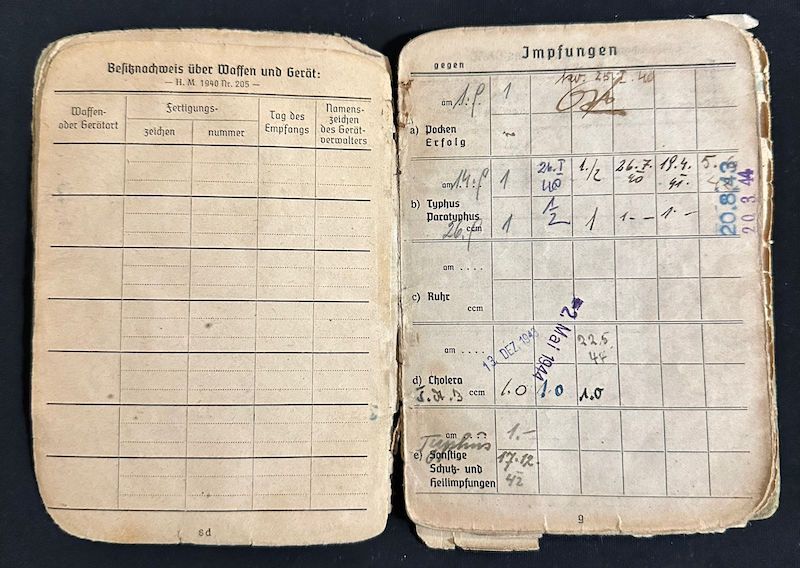 Besitznachweis über Waffen und Gerät:
— H. M. 1940 Nr. 205 —
Waffen-
oder Gerätart
Fertigungs-
zeichen
nummer
Tag des
Empfangs
Namens-
zeichen
des Gerät-
verwalters
8d
Impfungen
gegen
am
1
a) Pocken
Erfolg
am
1
26. I
40
1./2
26.7.
40
19.4.
41.
5.
20.8.43
20.3.44
b) Typhus
Paratyphus
ccm
1
1/2
1
1.-
1.-
am ....
c) Ruhr
ccm
am ....
13. DEZ 1943
2. Mai 1944
22.5.
44
d) Cholera
ccm
1.0
1.0
1.0
am
1.-
Typhus
e) Sonstige
Schutz- und
Heilimpfungen
17.12.
42
9